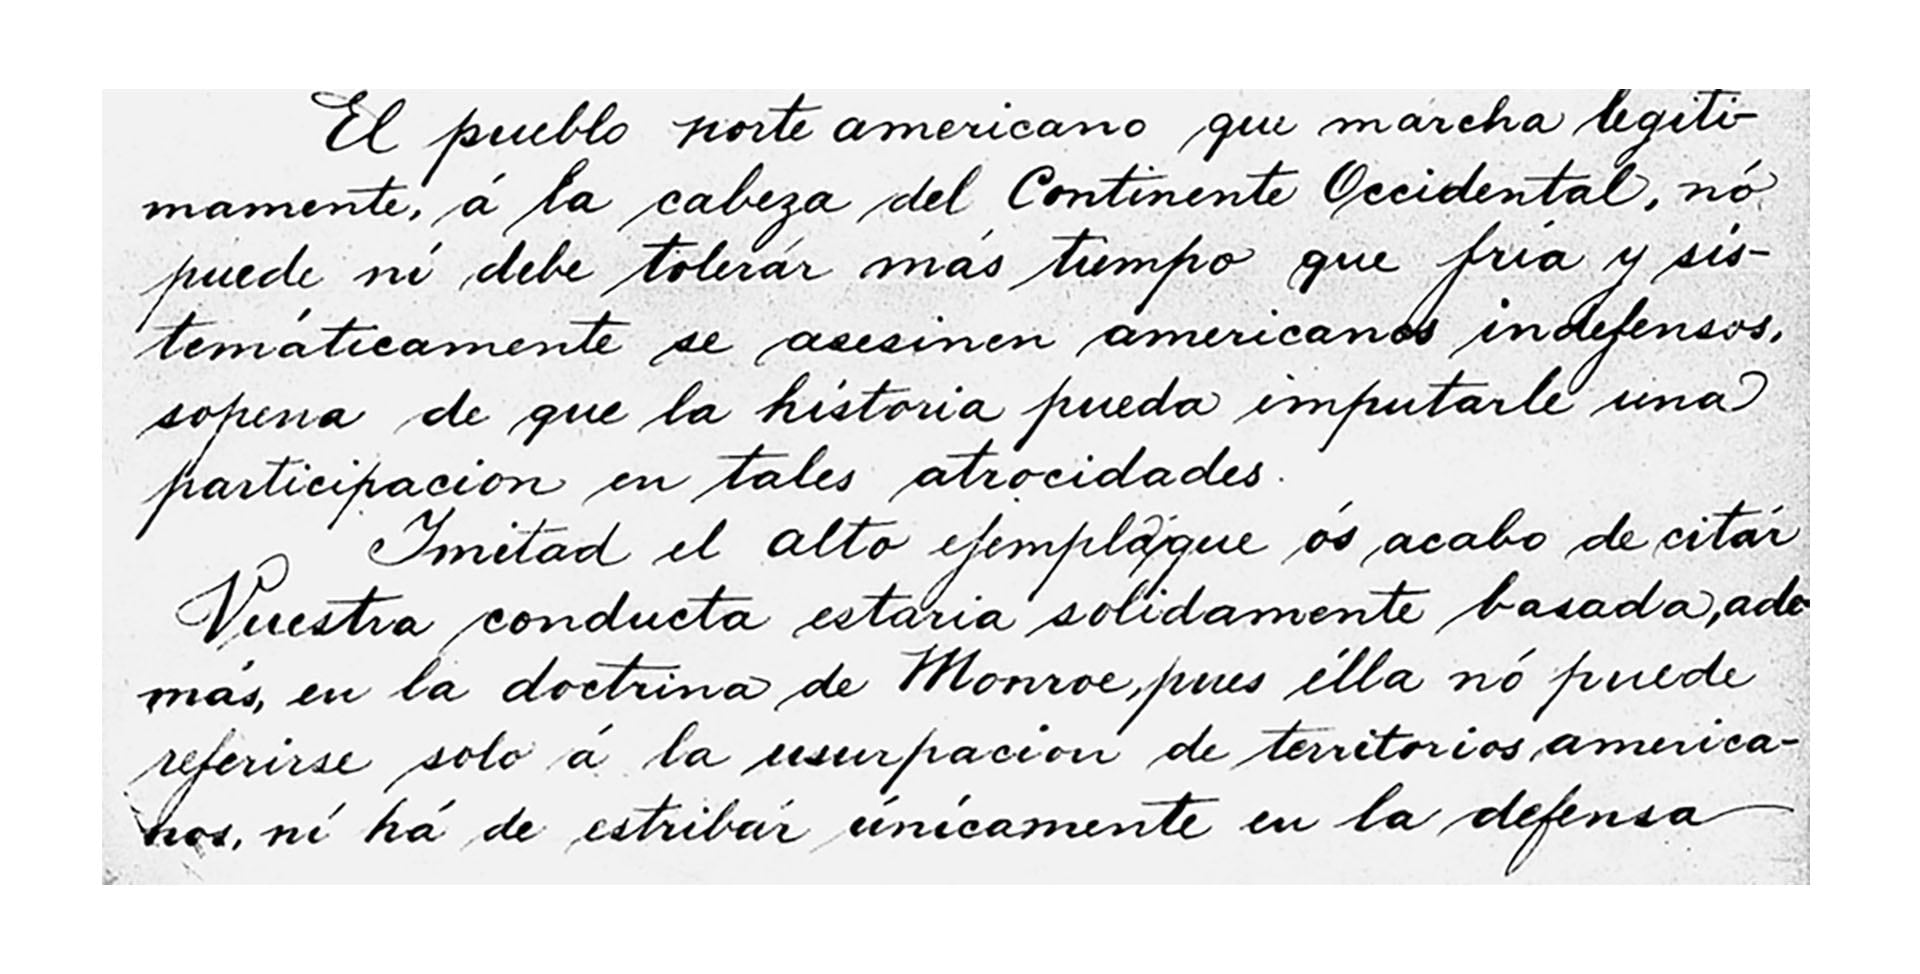 El pueblo norte americano que marcha legiti-
mamente, á la cabeza del Continente Occidental, nó
puede ni debe tolerár más tiempo que fría y sis-
temáticamente se asesinen americanos indefensos,
sopena de que la história pueda imputarle una
participacion en tales atrocidades.
Imitad el alto ejemplo que ós acabo de citár
Vuestra conducta estaria solidamente basada, ade
más, en la doctrina de Monroe, pues élla nó puede
referirse solo á la usurpacion de territorios america-
nos, ni há de estribár únicamente en la defensa